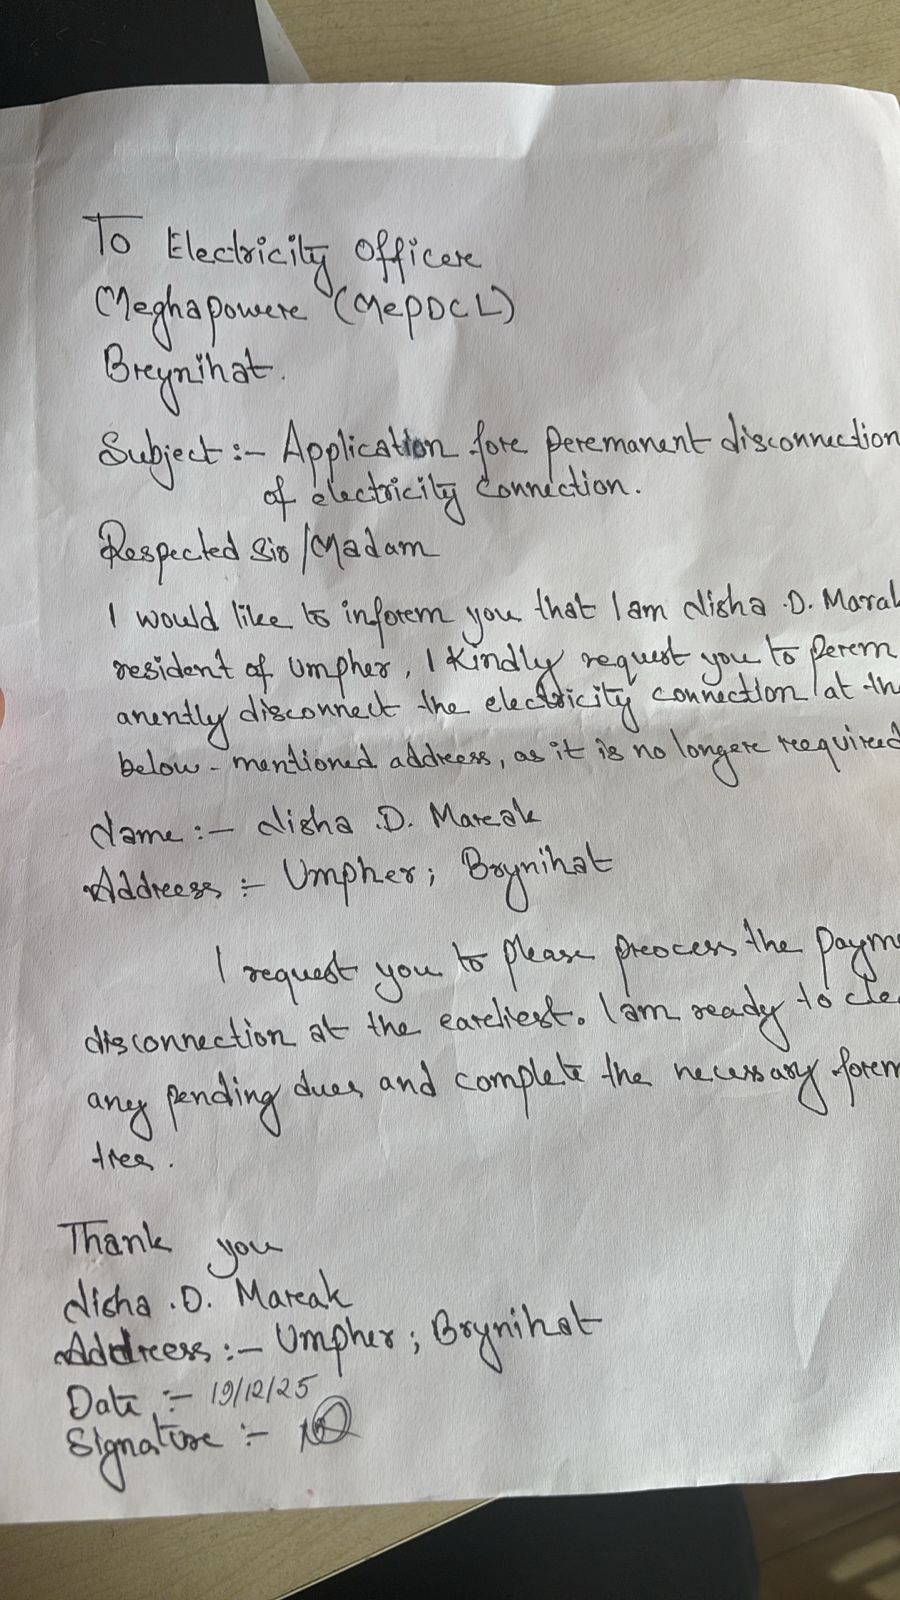 To Electricity Officere
Meghapowere (MePDCL)
Breynihat.
Subject :- Application fore peremanent disconnection
of electricity connection.
Respected Sir/Madam
I would like to inforem you that I am Nisha .D. Marak
resident of Umpher, I kindly request you to perem
anently disconnect the electricity connection at the
below - mentioned address, as it is no longere reequired
Name :- Nisha .D. Mareak
Addreess :- Umpher; Brynihat
I request you to please preocess the payme
disconnection at the eareliest. I am ready to clea
any pending dues and complete the necessary forem
ties.
Thank you
Nisha .D. Mareak
Addreess :- Umpher ; Brynihat
Date :- 19/12/25
Signature :-